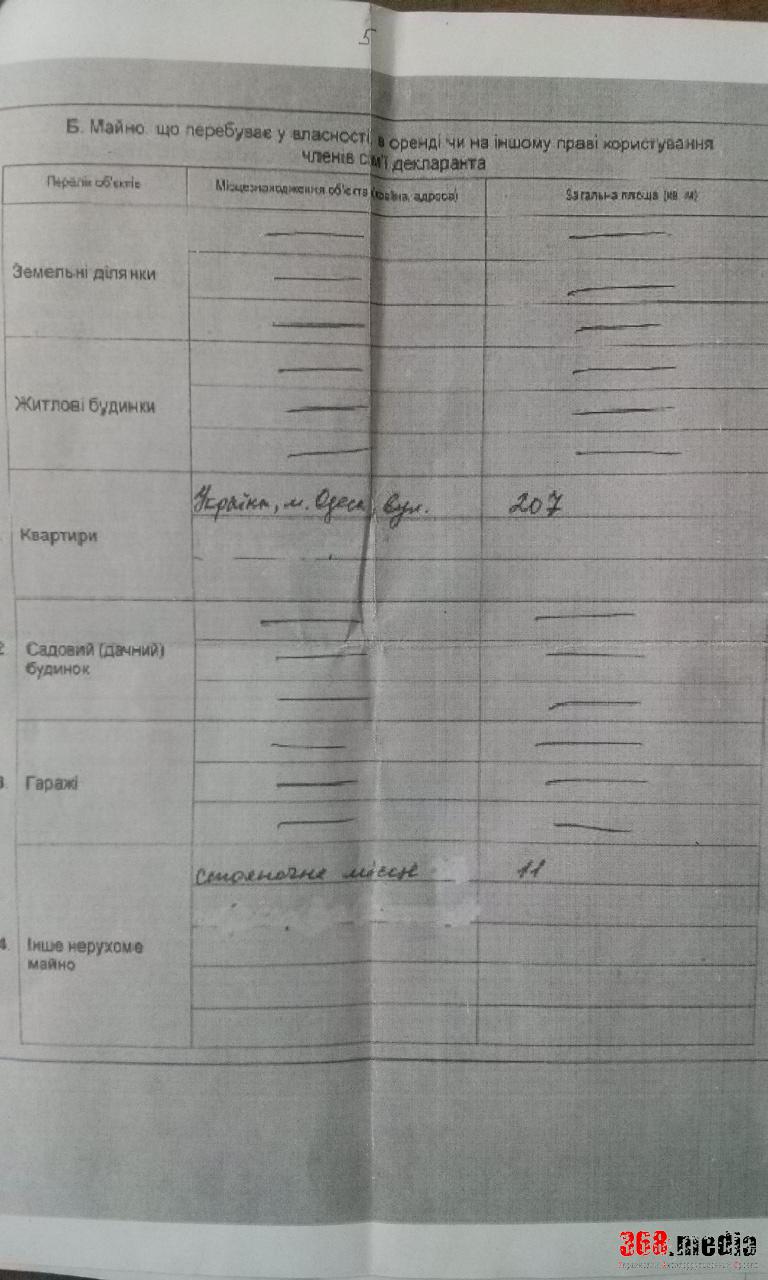 5
Б. Майно, що перебуває у власності, в оренді чи на іншому праві користування
членів сім'ї декларанта
Перелік об'єктів
Місцезнаходження об'єкта (країна, адреса)
Загальна площа (кв. м)
Земельні ділянки
Житлові будинки
Україна, м. Одеса, вул. 207
Квартири
2 Садовий (дачний)
будинок
3. Гаражі
стояночне місце 11
4. Інше нерухоме
майно
368.media